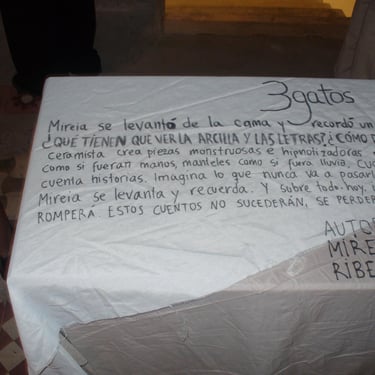 3gatos
Mireia se levantó de la cama y recordó un
¿QUÉ TIENEN QUE VER LA ARCILLA Y LAS LETRAS? ¿CÓMO
ceramista crea piezas monstruosas e hipnotizadoras
como si fueran manos, manteles como si fuera lluvia.
cuenta historias. Imagina lo que nunca va a
Mireia se levanta y recuerda. Y sobre todo hoy,
ROMPERÁ. ESTOS CUENTOS NO SUCEDERÁN, SE
AUTO
MIRE
RIBE